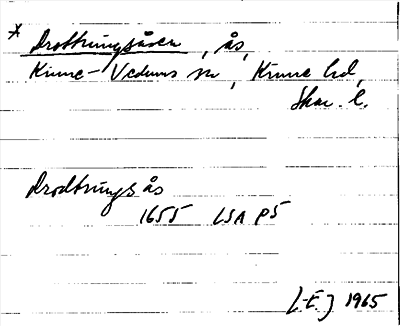 * Drottningåsen, ås,
Kinne-Vedums sn, Kinne hd,
Skar. l.
Drodtnings ås
1655 LSA P5
[-E-] 1965